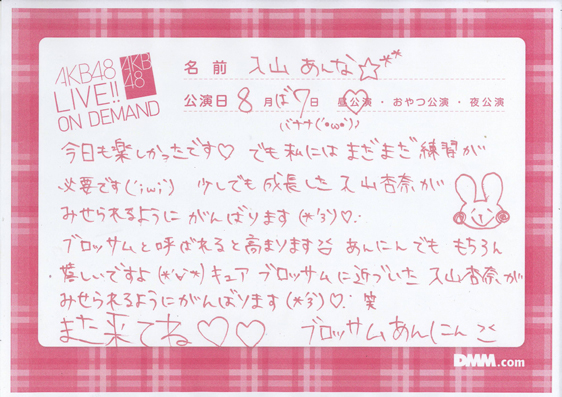 AKB48
LIVE!!
ON DEMAND
AKB
48
名前 入山あんな☆**
公演日 8月ば7日 昼公演・おやつ公演・夜公演
(バナナ(´•ω•`)♪
今日も楽しかったです♡ でも私にはまだまだ練習が
必要です(´;ω;`) 少しでも成長した入山杏奈が
みせられるようにがんばります(*´3`)♡.
ブロッサムと呼ばれると高まります あんにんでももちろん
嬉しいですよ(*´∨`*)キュアブロッサムに近づいた入山杏奈が
みせられるようにがんばります(*´3`)♡. 笑
また来てね♡♡ ブロッサムあんにん
DMM.com